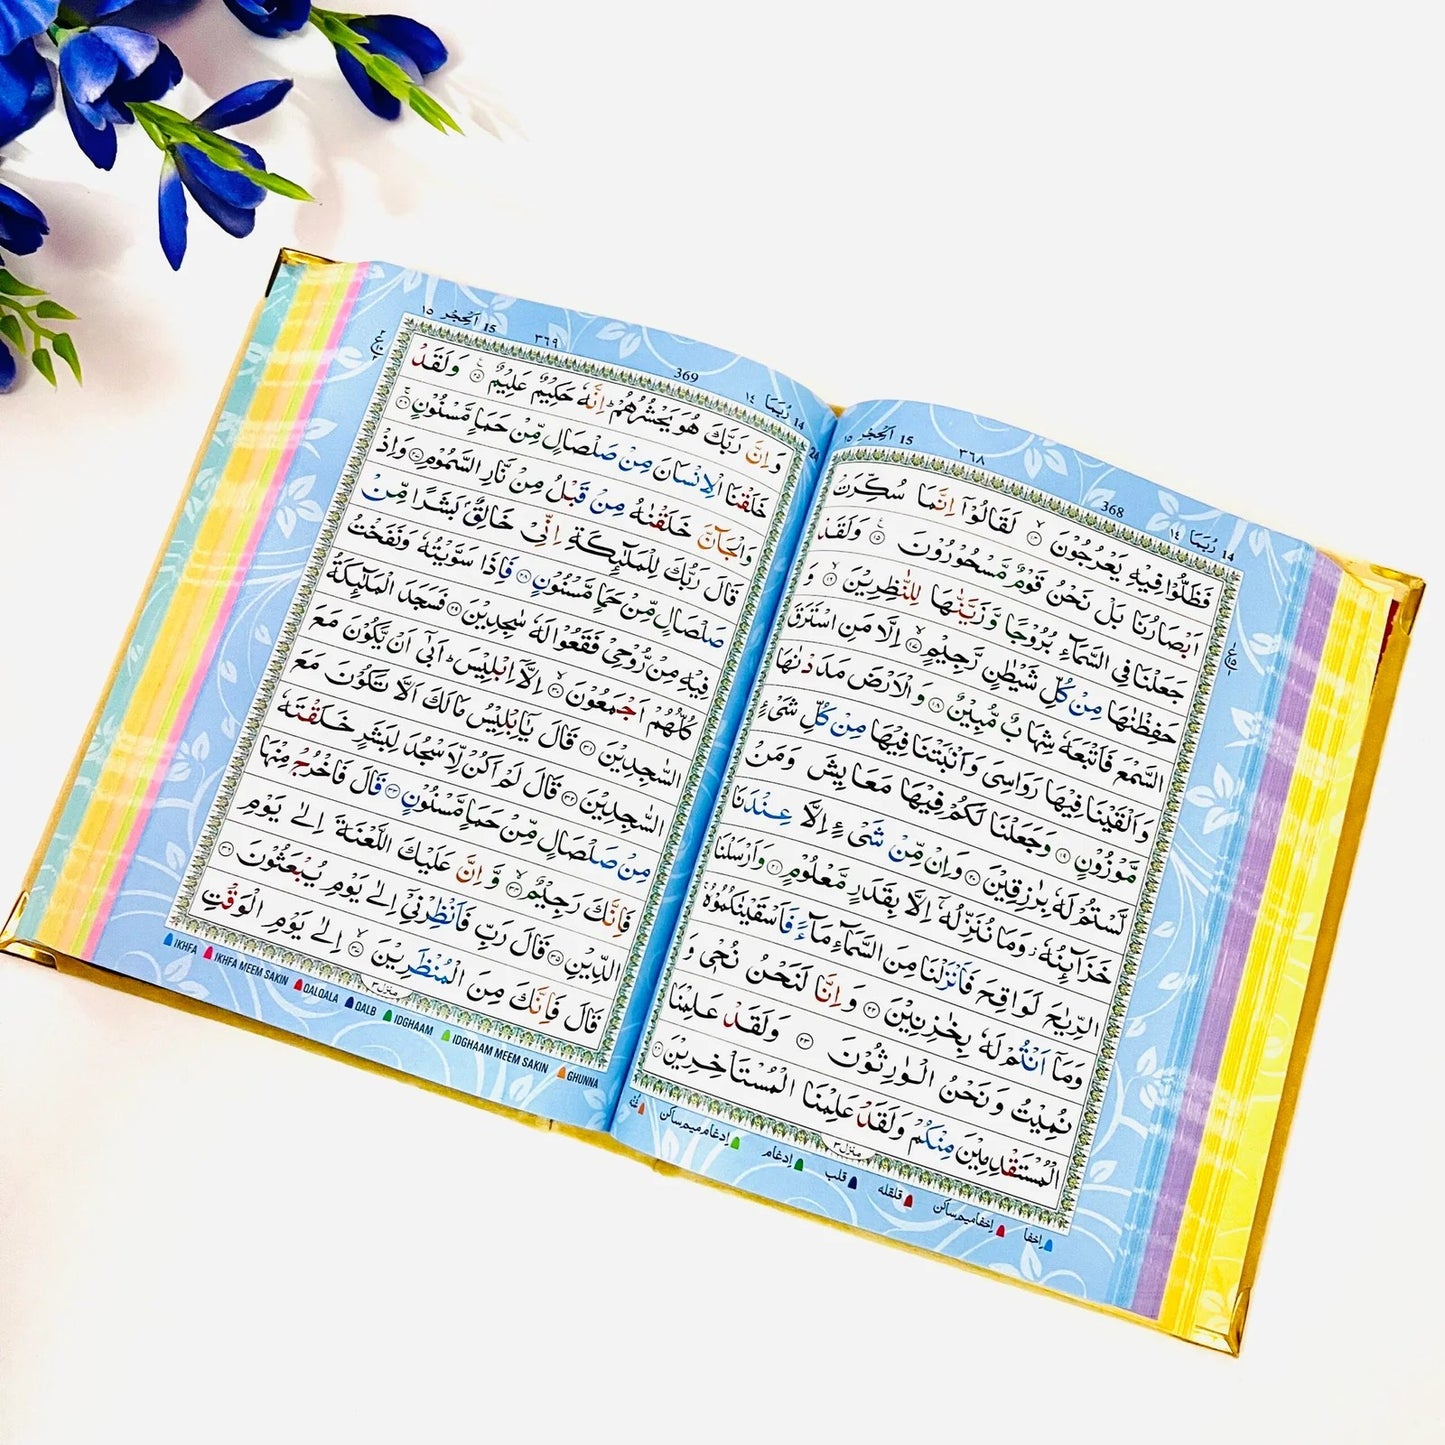 14 رُبَمَا ١٤ 368 ٣٦٨ 15 اَلْحِجْر ١٥
فَظَلُّوْا فِيْهِ يَعْرُجُوْنَ ۙ ١٤ لَقَالُوْۤا اِنَّمَا سُكِّرَتْ
اَبْصَارُنَا بَلْ نَحْنُ قَوْمٌ مَّسْحُوْرُوْنَ ١٥ وَلَقَدْ
جَعَلْنَا فِى السَّمَآءِ بُرُوْجًا وَّزَيَّنّٰهَا لِلنّٰظِرِيْنَ ١٦ وَ
حَفِظْنٰهَا مِنْ كُلِّ شَيْطٰنٍ رَّجِيْمٍ ١٧ اِلَّا مَنِ اسْتَرَقَ
السَّمْعَ فَاَتْبَعَهٗ شِهَابٌ مُّبِيْنٌ ١٨ وَالْاَرْضَ مَدَدْنٰهَا
وَاَلْقَيْنَا فِيْهَا رَوَاسِىَ وَاَنْۢبَتْنَا فِيْهَا مِنْ كُلِّ شَىْءٍ
مَّوْزُوْنٍ ١٩ وَجَعَلْنَا لَكُمْ فِيْهَا مَعَايِشَ وَمَنْ
لَّسْتُمْ لَهٗ بِرٰزِقِيْنَ ٢٠ وَاِنْ مِّنْ شَىْءٍ اِلَّا عِنْدَنَا
خَزَآئِنُهٗ وَمَا نُنَزِّلُهٗۤ اِلَّا بِقَدَرٍ مَّعْلُوْمٍ ٢١ وَاَرْسَلْنَا
الرِّيٰحَ لَوَاقِحَ فَاَنْزَلْنَا مِنَ السَّمَآءِ مَآءً فَاَسْقَيْنٰكُمُوْهُ
وَمَاۤ اَنْتُمْ لَهٗ بِخٰزِنِيْنَ ٢٢ وَاِنَّا لَنَحْنُ نُحْىٖ وَ
نُمِيْتُ وَنَحْنُ الْوٰرِثُوْنَ ٢٣ وَلَقَدْ عَلِمْنَا
الْمُسْتَقْدِمِيْنَ مِنْكُمْ وَلَقَدْ عَلِمْنَا الْمُسْتَاْخِرِيْنَ ٢٤
منزل ٣
إخفا إخفا ميم ساكن قلقله قلب إدغام إدغام ميم ساكن غنه
14 رُبَمَا ١٤ 369 ٣٦٩ 15 اَلْحِجْر ١٥
وَاِنَّ رَبَّكَ هُوَ يَحْشُرُهُمْ ؕ اِنَّهٗ حَكِيْمٌ عَلِيْمٌ ٢٥ وَلَقَدْ
خَلَقْنَا الْاِنْسَانَ مِنْ صَلْصَالٍ مِّنْ حَمَاٍ مَّسْنُوْنٍ ٢٦
وَالْجَآنَّ خَلَقْنٰهُ مِنْ قَبْلُ مِنْ نَّارِ السَّمُوْمِ ٢٧ وَاِذْ
قَالَ رَبُّكَ لِلْمَلٰٓئِكَةِ اِنِّىْ خَالِقٌۢ بَشَرًا مِّنْ
صَلْصَالٍ مِّنْ حَمَاٍ مَّسْنُوْنٍ ٢٨ فَاِذَا سَوَّيْتُهٗ وَنَفَخْتُ
فِيْهِ مِنْ رُّوْحِىْ فَقَعُوْا لَهٗ سٰجِدِيْنَ ٢٩ فَسَجَدَ الْمَلٰٓئِكَةُ
كُلُّهُمْ اَجْمَعُوْنَ ٣٠ اِلَّاۤ اِبْلِيْسَ ؕ اَبٰٓى اَنْ يَّكُوْنَ مَعَ
السّٰجِدِيْنَ ٣١ قَالَ يٰۤاِبْلِيْسُ مَا لَكَ اَلَّا تَكُوْنَ مَعَ
السّٰجِدِيْنَ ٣٢ قَالَ لَمْ اَكُنْ لِّاَسْجُدَ لِبَشَرٍ خَلَقْتَهٗ
مِنْ صَلْصَالٍ مِّنْ حَمَاٍ مَّسْنُوْنٍ ٣٣ قَالَ فَاخْرُجْ مِنْهَا
فَاِنَّكَ رَجِيْمٌ ٣٤ وَّاِنَّ عَلَيْكَ اللَّعْنَةَ اِلٰى يَوْمِ
الدِّيْنِ ٣٥ قَالَ رَبِّ فَاَنْظِرْنِىْۤ اِلٰى يَوْمِ يُبْعَثُوْنَ ٣٦
قَالَ فَاِنَّكَ مِنَ الْمُنْظَرِيْنَ ٣٧ اِلٰى يَوْمِ الْوَقْتِ
منزل ٣
IKHFA IKHFA MEEM SAKIN QALQALA QALB IDGHAAM IDGHAAM MEEM SAKIN GHUNNA